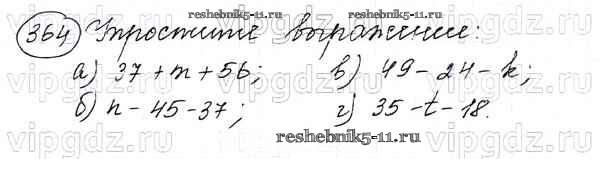 reshebnik5-11.ru
364 Упростите выражение:
а) 37 + m + 56; в) 49 - 24 - k;
б) n - 45 - 37; г) 35 - t - 18.
reshebnik5-11.ru
vipgdz.ru vipgdz.ru vipgdz.ru vipgdz.ru